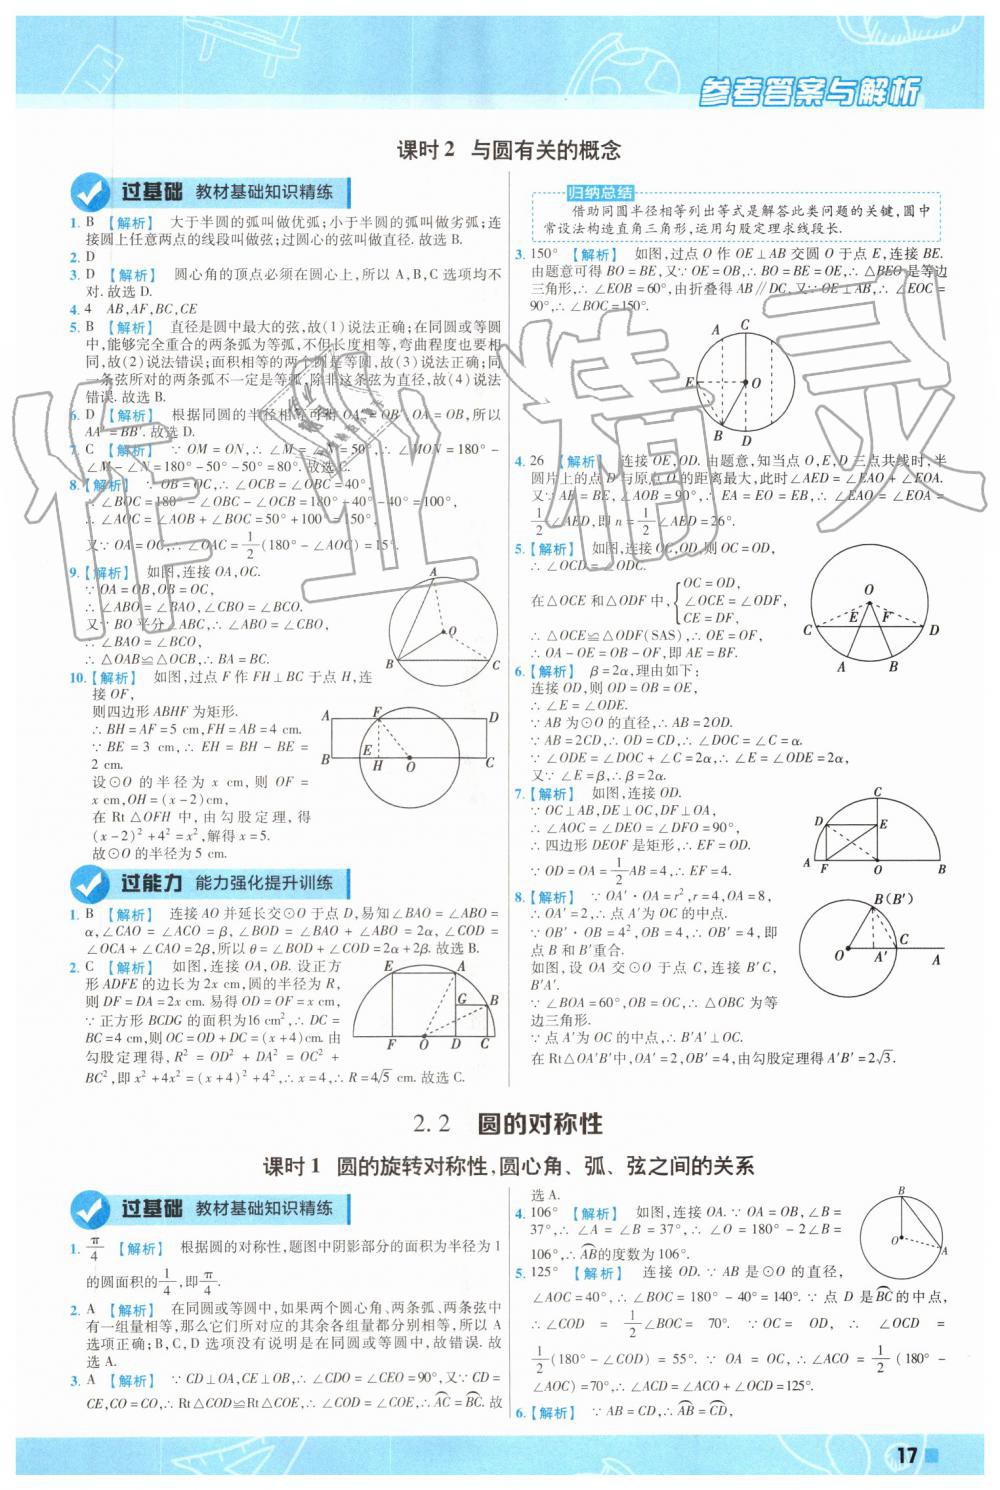 参考答案与解析
课时2 与圆有关的概念
过基础 教材基础知识精练
1. B 【解析】 大于半圆的弧叫做优弧;小于半圆的弧叫做劣弧;连
接圆上任意两点的线段叫做弦;过圆心的弦叫做直径. 故选 B.
2. D
3. D 【解析】 圆心角的顶点必须在圆心上,所以 A,B,C 选项均不
对. 故选 D.
4. 4 AB,AF,BC,CE
5. B 【解析】 直径是圆中最大的弦,故(1)说法正确;在同圆或等圆
中,能够完全重合的两条弧为等弧,不但长度相等,弯曲程度也要相
同,故(2)说法错误;面积相等的两个圆是等圆,故(3)说法正确;同
一条弦所对的两条弧不一定是等弧,除非这条弦为直径,故(4)说法
错误. 故选 B.
6. D 【解析】 根据同圆的半径相等可得 OA′=OB′,OA=OB,所以
AA′=BB′. 故选 D.
7. C 【解析】 ∵OM=ON,∴∠M=∠N=50°,∴∠MON=180°-
∠M-∠N=180°-50°-50°=80°. 故选 C.
8. 【解析】 ∵OB=OC,∴∠OCB=∠OBC=40°,
∴∠BOC=180°-∠OBC-∠OCB=180°-40°-40°=100°,
∴∠AOC=∠AOB+∠BOC=50°+100°=150°,
又∵OA=OC,∴∠OAC=1/2(180°-∠AOC)=15°.
9. 【解析】 如图,连接 OA,OC.
∵OA=OB,OB=OC,
∴∠ABO=∠BAO,∠CBO=∠BCO.
又∵BO 平分∠ABC,∴∠ABO=∠CBO,
∴∠BAO=∠BCO,
∴△OAB≌△OCB,∴BA=BC.
A
O
B
C
10. 【解析】 如图,过点 F 作 FH⊥BC 于点 H,连
接 OF,
则四边形 ABHF 为矩形.
∴BH=AF=5 cm,FH=AB=4 cm.
∵BE=3 cm,∴EH=BH-BE=
2 cm.
设⊙O 的半径为 x cm,则 OF=
x cm,OH=(x-2)cm,
在 Rt△OFH 中,由勾股定理,得
(x-2)²+4²=x²,解得 x=5.
故⊙O 的半径为 5 cm.
A F D
B E H O C
过能力 能力强化提升训练
1. B 【解析】 连接 AO 并延长交⊙O 于点 D,易知∠BAO=∠ABO=
α,∠CAO=∠ACO=β,∠BOD=∠BAO+∠ABO=2α,∠COD=
∠OCA+∠CAO=2β,所以 θ=∠BOD+∠COD=2α+2β. 故选 B.
2. C 【解析】 如图,连接 OA,OB. 设正方
形 ADFE 的边长为 2x cm,圆的半径为 R,
则 DF=DA=2x cm. 易得 OD=OF=x cm,
∵正方形 BCDG 的面积为16 cm²,∴DC=
BC=4 cm,则 OC=OD+DC=(x+4)cm. 由
勾股定理得,R²=OD²+DA²=OC²+
BC²,即 x²+4x²=(x+4)²+4²,∴x=4,∴R=4√5 cm. 故选 C.
E A
G B
F O D C
归纳总结
借助同圆半径相等列出等式是解答此类问题的关键,圆中
常设法构造直角三角形,运用勾股定理求线段长.
3. 150° 【解析】 如图,过点 O 作 OE⊥AB 交圆 O 于点 E,连接 BE.
由题意可得 BO=BE,又∵OE=OB,∴BO=BE=OE,∴△BEO 是等边
三角形,∴∠EOB=60°,由折叠得 AB∥DC. 又∵OE⊥AB,∴∠EOC=
90°,∴∠BOC=150°.
A C
E O
B D
4. 26 【解析】 连接 OE,OD. 由题意,知当点 O,E,D 三点共线时,半
圆片上的点 D 与原点 O 的距离最大,此时∠AED=∠EAO+∠EOA.
又∵AE=BE,∠AOB=90°,∴EA=EO=EB,∴∠EAO=∠EOA=
1/2∠AED,即 n=1/2∠AED=26°.
5. 【解析】 如图,连接 OC,OD,则 OC=OD,
∴∠OCD=∠ODC.
在△OCE 和△ODF 中,{OC=OD,
∠OCE=∠ODF,
CE=DF,
∴△OCE≌△ODF(SAS),∴OE=OF,
∴OA-OE=OB-OF,即 AE=BF.
O
C E F D
A B
6. 【解析】 β=2α,理由如下:
连接 OD,则 OD=OB=OE,
∴∠E=∠ODE.
∵AB 为⊙O 的直径,∴AB=2OD.
∵AB=2CD,∴OD=CD,∴∠DOC=∠C=α.
∵∠ODE=∠DOC+∠C=2α,∴∠E=∠ODE=2α,
又∵∠E=β,∴β=2α.
7. 【解析】 如图,连接 OD.
∵OC⊥AB,DE⊥OC,DF⊥OA,
∴∠AOC=∠DEO=∠DFO=90°,
∴四边形 DEOF 是矩形,∴EF=OD.
∵OD=OA=1/2AB=4,∴EF=4.
C
D E
A F O B
8. 【解析】 ∵OA′·OA=r²,r=4,OA=8,
∴OA′=2,∴点 A′为 OC 的中点.
∵OB′·OB=4²,OB=4,∴OB′=4,即
点 B 和 B′重合.
如图,设 OA 交⊙O 于点 C,连接 B′C,
B′A′.
∵∠BOA=60°,OB=OC,∴△OBC 为等
边三角形.
∵点 A′为 OC 的中点,∴B′A′⊥OC.
在 Rt△OA′B′中,OA′=2,OB′=4,由勾股定理得 A′B′=2√3.
B(B′)
C
O A′ A
2.2 圆的对称性
课时1 圆的旋转对称性,圆心角、弧、弦之间的关系
过基础 教材基础知识精练
1. π/4 【解析】 根据圆的对称性,题图中阴影部分的面积为半径为 1
的圆面积的1/4,即π/4.
2. A 【解析】 在同圆或等圆中,如果两个圆心角、两条弧、两条弦中
有一组量相等,那么它们所对应的其余各组量都分别相等,所以 A
选项正确;B,C,D 选项没有说明是在同圆或等圆中,故错误. 故
选 A.
3. A 【解析】 ∵CD⊥OA,CE⊥OB,∴∠CDO=∠CEO=90°,又∵CD=
CE,CO=CO,∴Rt△COD≌Rt△COE,∴∠COD=∠COE,∴A͡C=B͡C. 故
选 A.
4. 106° 【解析】 如图,连接 OA. ∵OA=OB,∠B=
37°,∴∠A=∠B=37°,∴∠O=180°-2∠B=
106°,∴A͡B的度数为 106°.
B
O
A
5. 125° 【解析】 连接 OD. ∵AB 是⊙O 的直径,
∠AOC=40°,∴∠BOC=180°-40°=140°. ∵点 D 是B͡C的中点,
∴∠COD=1/2∠BOC=70°. ∵OC=OD,∴∠OCD=
1/2(180°-∠COD)=55°. ∵OA=OC,∴∠ACO=1/2(180°-
∠AOC)=70°,∴∠ACD=∠ACO+∠OCD=125°.
6. 【解析】 ∵AB=CD,∴A͡B=C͡D,
17
作业精灵